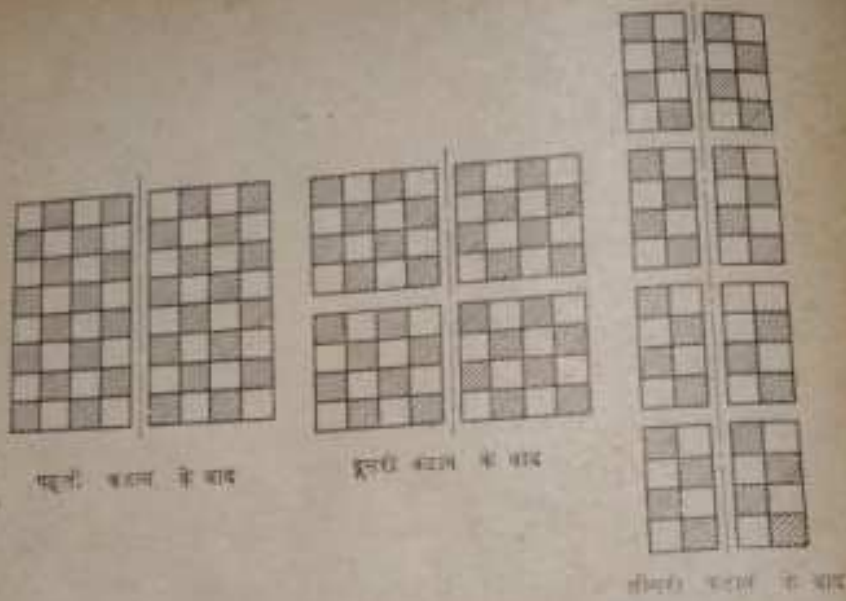 पहली कटान के बाद
दूसरी कटान के बाद
तीसरी कटान के बाद